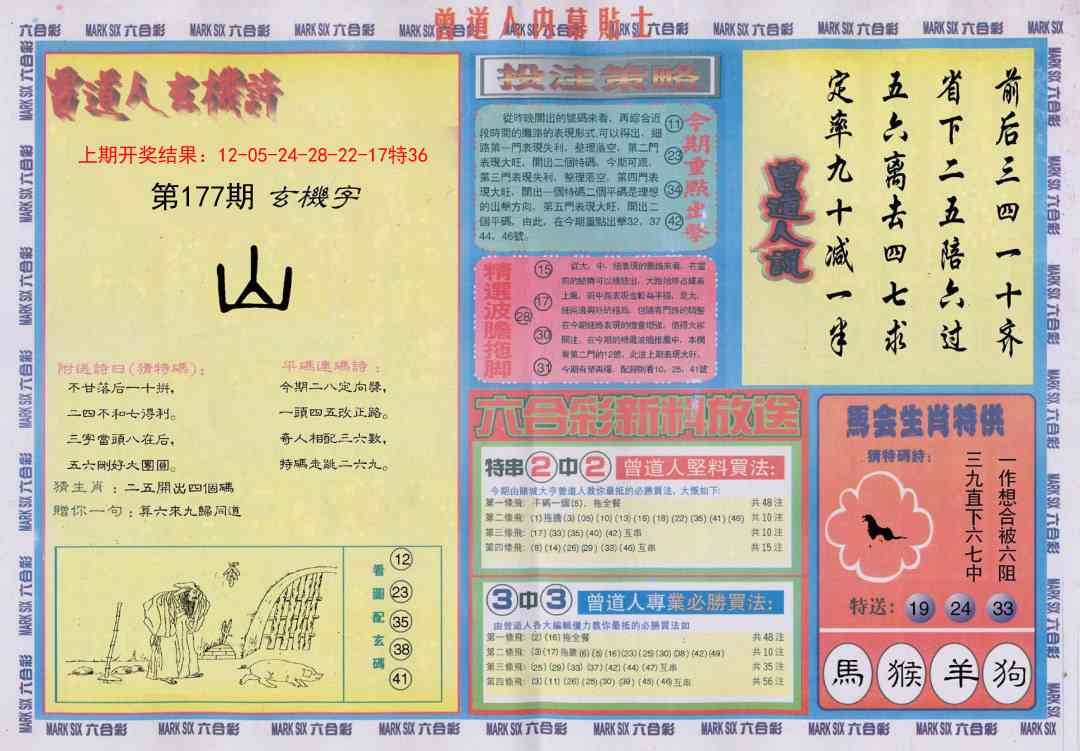 曾道人内幕貼士
MARK SIX 六合彩
曾道人玄機詩
上期开奖结果：12-05-24-28-22-17特36
第177期 玄機字
山
附送詩曰(猜特碼)：
不甘落后一十拼，
二四不和七得利。
三字當頭八在后，
五六剛好大團圓。
平碼連碼詩：
今期二八定向獎，
一頭四五改正路。
奇人相配三六數，
特碼走跳二六九。
猜生肖：二五開出四個碼
贈你一句：算六來九歸同道
看圖配玄碼
12
23
35
38
41
投注策略
從昨晚開出的號碼來看，再綜合近
段時間的攤路的表現形式，可以得出，細
路第一門表現失利，整理落空，第二門
表現大旺，開出二個特碼，今期可跟，
第三門表現失利，整理落空，第四門表
現大旺，開出一個特碼二個平碼是理想
的出擊方向，第五門表現大旺，開出二
個平碼，由此，在今期重點出擊32、37
44、46號。
11
23
34
42
今期重點出擊
精選波膽拖脚
15
17
28
30
31
六合彩新料放送
特串2中2 曾道人堅料買法：
今期由賭城大亨曾道人教你最抵的必勝買法，大慨如下：
第一條飛：平碼一個(5)，拖全餐 共48注
第二條飛：(1)拖膽(3)(05)(10)(13)(16)(18)(22)(35)(41)(46) 共10注
第三條飛：(17)(33)(35)(40)(42)互串 共10注
第四條飛：(8)(14)(26)(29)(33)(46)互串 共15注
3中3 曾道人專業必勝買法：
由曾道人各大編輯僅力教你最抵的必勝買法如
第一條飛：(2)(16)拖全餐 共48注
第二條飛：(3)(17)拖膽(6)(8)(16)(23)(25)(30)(38)(42)(49) 共10注
第三條飛：(25)(29)(33)(37)(42)(44)(47)互串 共35注
第四條飛：(3)(11)(26)(25)(30)(39)(45)(46)互串 共56注
前后三四一十齐
省下二五陪六过
五六离去四七求
定率九十减一半
曾道人說
馬会生肖特供
猜特碼詩：
一作想合被六阻
三九直下六七中
特送：19 24 33
馬 猴 羊 狗
MARK SIX 六合彩